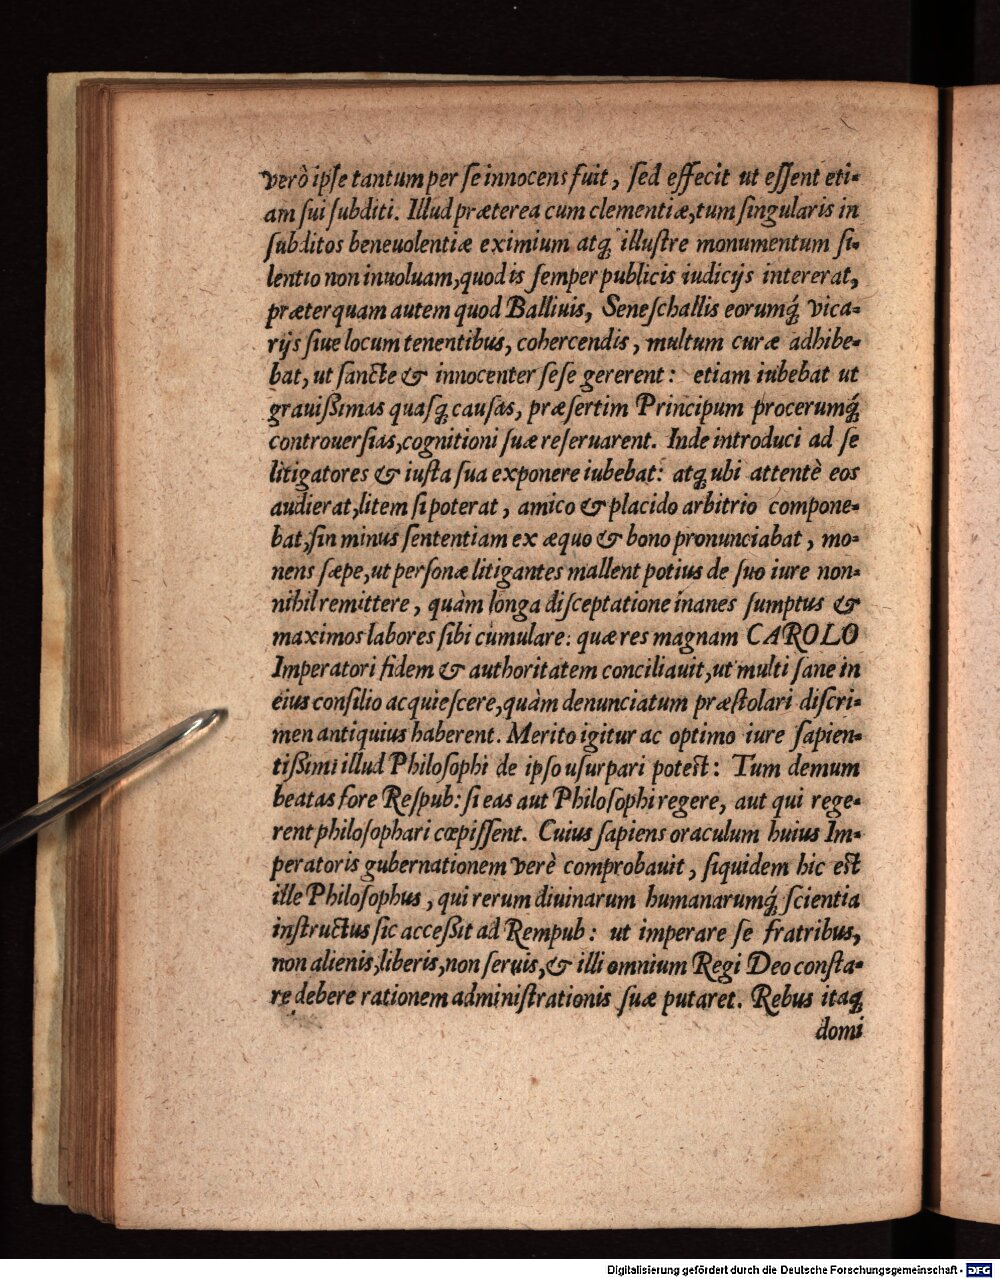 verò ipſe tantum per ſe innocens fuit, ſed effecit ut eſſent eti-
am ſui ſubditi. Illud præterea cum clementiæ, tum ſingularis in
ſubditos beneuolentiæ eximium atq; illuſtre monumentum ſi-
lentio non inuoluam, quod is ſemper publicis iudicijs intererat,
præterquam autem quod Balliuis, Seneſchallis eorumq́; vica-
rijs ſiue locum tenentibus, cohercendis, multum curæ adhibe-
bat, ut ſancte & innocenter ſeſe gererent: etiam iubebat ut
grauißimas quaſq; cauſas, præſertim Principum procerumq́;
controuerſias, cognitioni ſuæ reſeruarent. Inde introduci ad ſe
litigatores & iuſta ſua exponere iubebat: atq; ubi attentè eos
audierat, litem ſi poterat, amico & placido arbitrio compone-
bat, ſin minus ſententiam ex æquo & bono pronunciabat, mo-
nens ſæpe, ut perſonæ litigantes mallent potius de ſuo iure non-
nihil remittere, quàm longa diſceptatione inanes ſumptus &
maximos labores ſibi cumulare: quæ res magnam CAROLO
Imperatori fidem & authoritatem conciliauit, ut multi ſane in
eius conſilio acquieſcere, quàm denunciatum præſtolari diſcri-
men antiquius haberent. Merito igitur ac optimo iure ſapien-
tißimi illud Philoſophi de ipſo uſurpari poteſt: Tum demum
beatas fore Reſpub: ſi eas aut Philoſophi regere, aut qui rege-
rent philoſophari cœpiſſent. Cuius ſapiens oraculum huius Im-
peratoris gubernationem verè comprobauit, ſiquidem hic eſt
ille Philoſophus, qui rerum diuinarum humanarumq́; ſcientia
inſtructus ſic acceßit ad Rempub: ut imperare ſe fratribus,
non alienis, liberis, non ſeruis, & illi omnium Regi Deo conſta-
re debere rationem adminiſtrationis ſuæ putaret. Rebus itaq;
domi
Digitalisierung gefördert durch die Deutsche Forschungsgemeinschaft - DFG